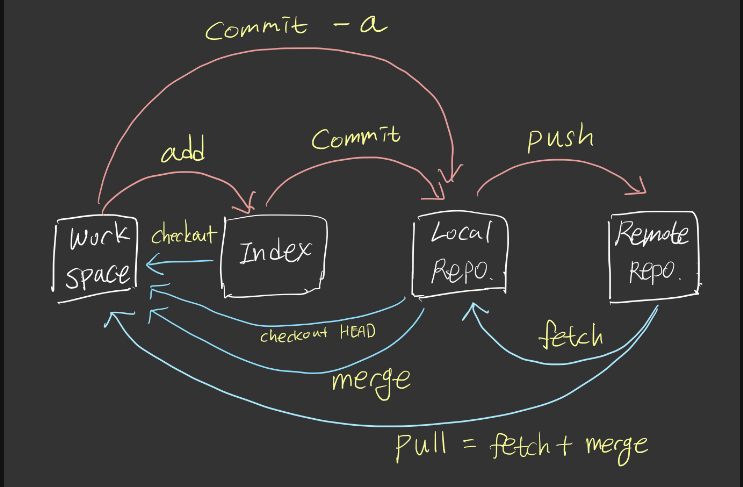 Commit -a
add
Commit
push
Work
space
checkout
Index
Local
Repo.
Remote
Repo.
checkout HEAD
fetch
merge
pull = fetch + merge